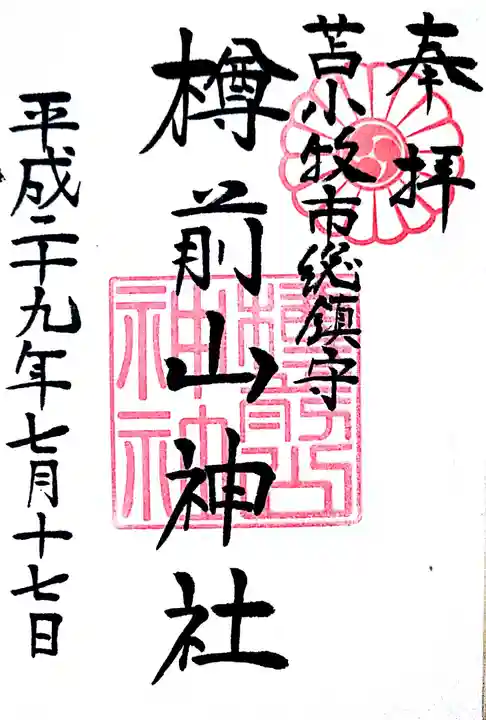 奉拝
苫小牧市総鎮守
樽前山神社
樽前山神社
平成二十九年七月十七日